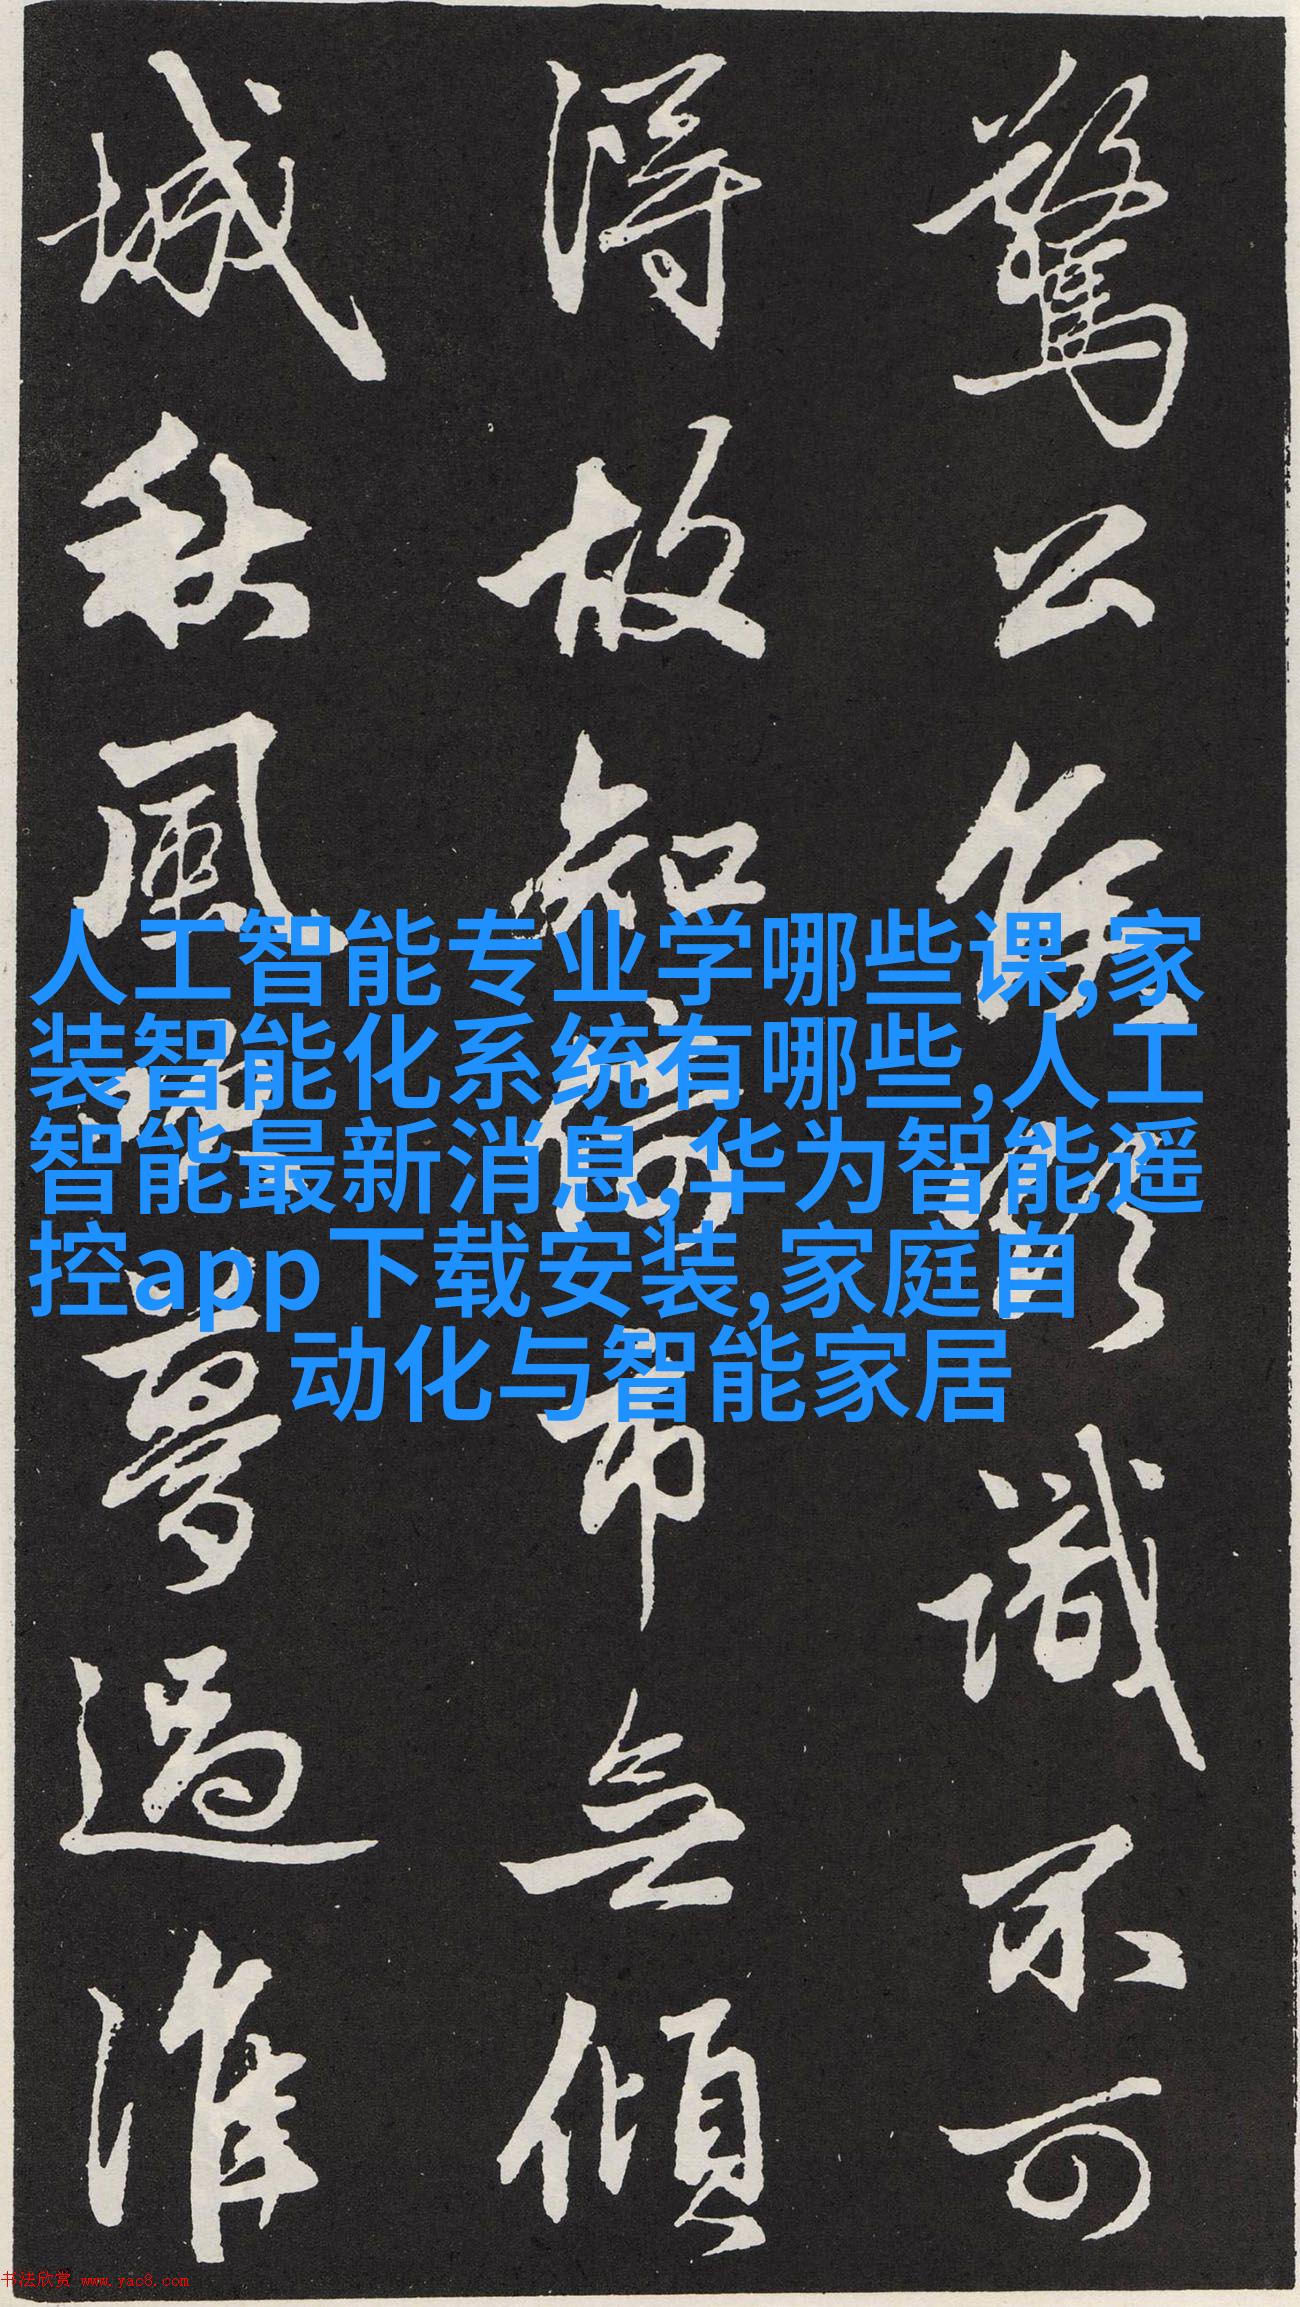 驚公識不可
得故知倚市無傾
城秋風夢過淮
人工智能专业学哪些课,家
装智能化系统有哪些,人工
智能最新消息,华为智能遥
控app下载安装,家庭自
动化与智能家居
书法欣赏 www.yac8.com